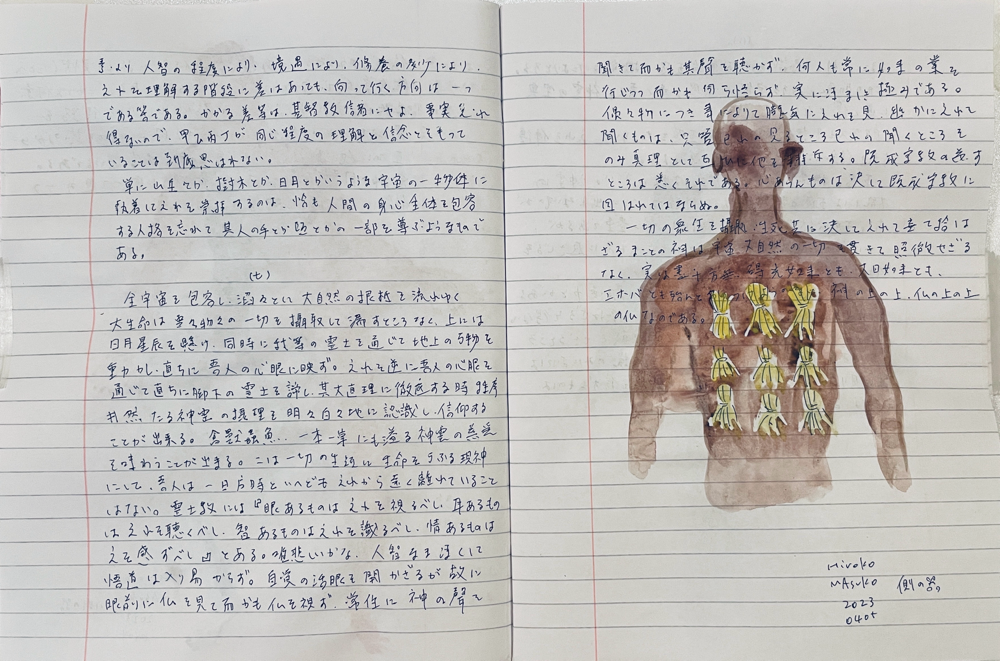 人智の程度により、境遇により、修養の多少により、
それを理解する階段に差はあっても、向って行く方向は一つ
である筈である。かかる差等は、基督教信者にせよ、事実それ
得ないので、甲乙丙丁が同じ程度の理解と信念とをもって
いるとは思はれない。
単に山岳とか、樹木とか、日月とかいうような宇宙の一物体に
執着してそれを崇拝するのは、恰も人間の身心全体を包容
する人格を忘れて其人の手とか足とかの一部を尊ぶようなもので
ある。
(七)
全宇宙を包容し、滔々として大自然の根柢を流れゆく
大生命は事々物々の一切を攝取して漏すところなく、上には
日月星辰を照り、同時に我等の霊土を通じて地上の万物を
動かし、直ちに吾人の心眼に映ず。それを逆に吾人の心眼を
通じて直ちに脚下の霊土を諦し、其大真理に徹底する時
井然たる神霊の摂理を明々白々地に認識し、信仰する
ことが出来る。禽獣蟲魚、一木一草にも溢る神霊の慈愛
を味わうことが出来る。こは一切の生類に生命を予ふる現神
にして、吾人は一日片時といへどもそれから遠く離れていること
はない。霊土教には『眼あるものはそれを視るべし、耳あるもの
はそれを聴くべし、智あるものはそれを識るべし、情あるものは
それを感ずべし』とある。唯悲しいかな、人智なる浅くして
悟道は入り易からず。自覚の活眼を開かざるが故に
眼前に仏を見て而かも仏を視ず、常住に神の聲を
聞きて而かも其聲を聴かず、何人も常に如来の業を
行じつつ而かも何ら悟らず、実に浅ましき極みである。
偶々物につき事によりて朧気にそれを見、幽かにそれを
聞くものは、只管己れの見るところ己れの聞くところを
のみ真理として他を排斥する。既成宗教の徒す
ところは悉くそれである。心あるものは決して既成宗教に
囚はれてはならぬ。
一切の衆生を攝取し、決してそれを棄て給は
ざるまことの神は宇宙大自然の一切を貫きて照徹せざる
なく、実に尽十方無碍光如来とも、大日如来とも、
エホバとも神の上の上、仏の上の上
の仏なのである。
Hiroko
MAsuko 倒の器。
2023
0405